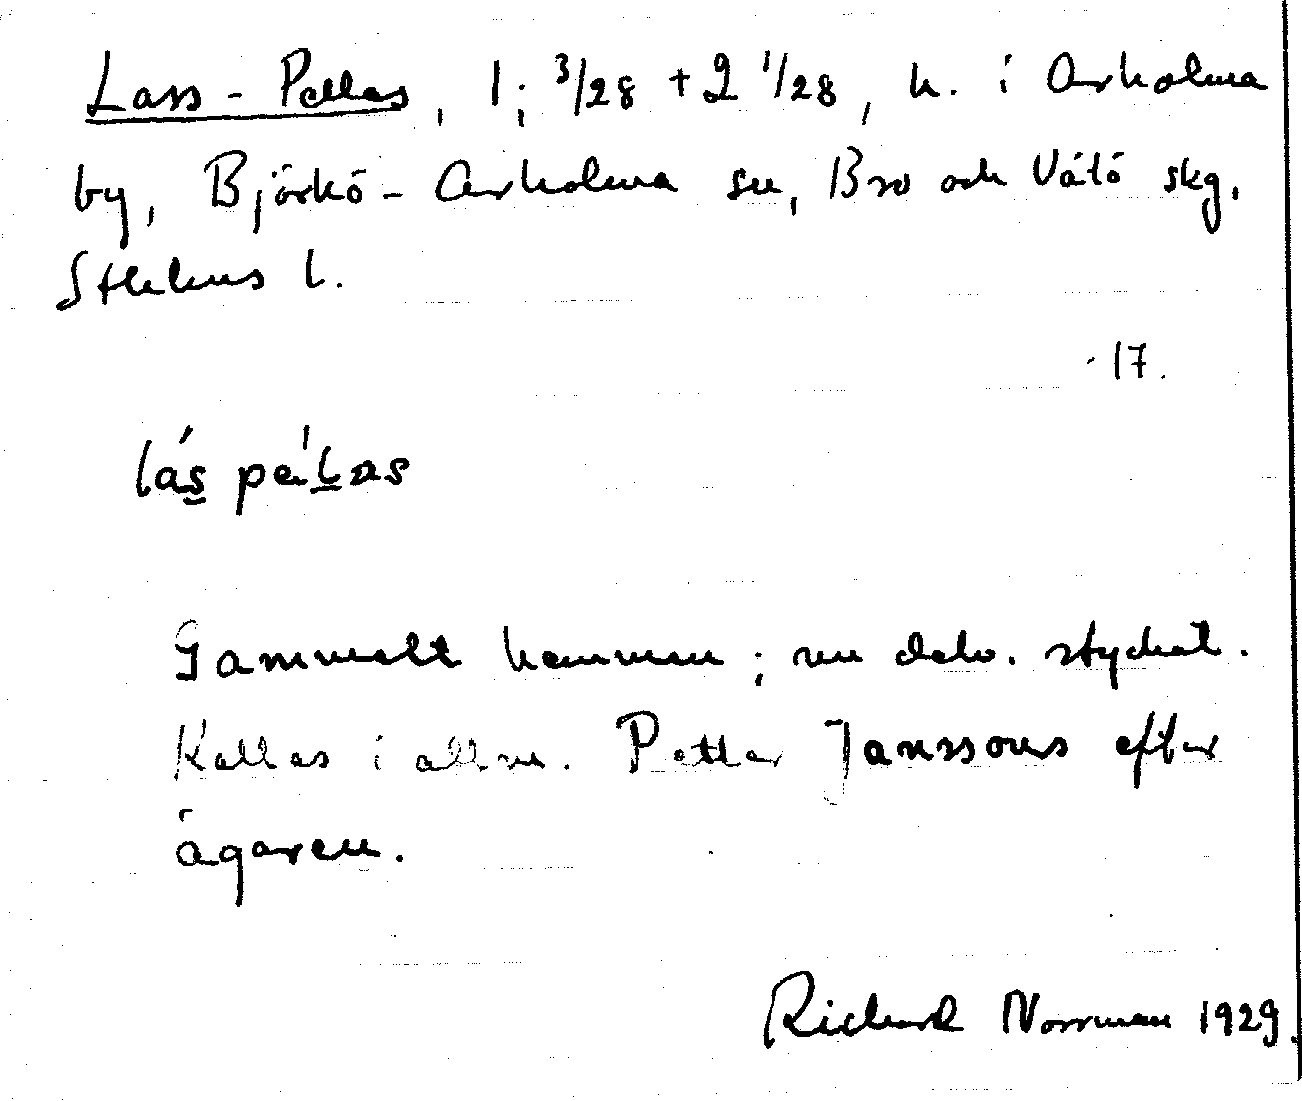 Lass-Pellas, 1; 3/28 + 2 1/28, h. i Arholma
by, Björkö-Arholma sn, Bro och Vätö skg,
Sthlms l.
17.
Gammalt hemman; nu delv. styckat.
Kallas i allm. Petter Janssons efter
ägaren.
Richard Norrman 1929.